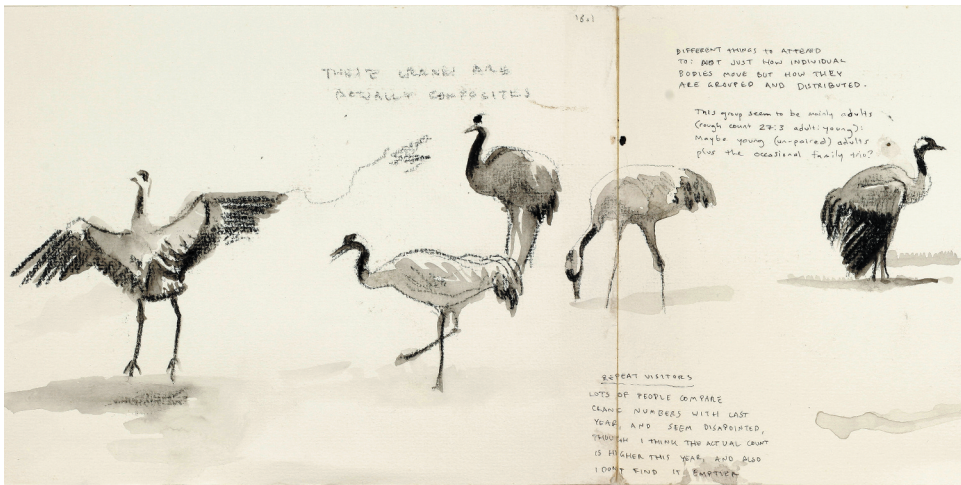 1601
THESE CRANES ARE
ACTUALLY COMPOSITES
DIFFERENT THINGS TO ATTEND
TO: NOT JUST HOW INDIVIDUAL
BODIES MOVE BUT HOW THEY
ARE GROUPED AND DISTRIBUTED.
This group seem to be mainly adults
(rough count 27:3 adult:young):
Maybe young (un-paired) adults
plus the occasional family trio?
REPEAT VISITORS
LOTS OF PEOPLE COMPARE
CRANE NUMBERS WITH LAST
YEAR, AND SEEM DISAPOINTED,
THOUGH I THINK THE ACTUAL COUNT
IS HIGHER THIS YEAR, AND ALSO
I DONT FIND IT EMPTIER